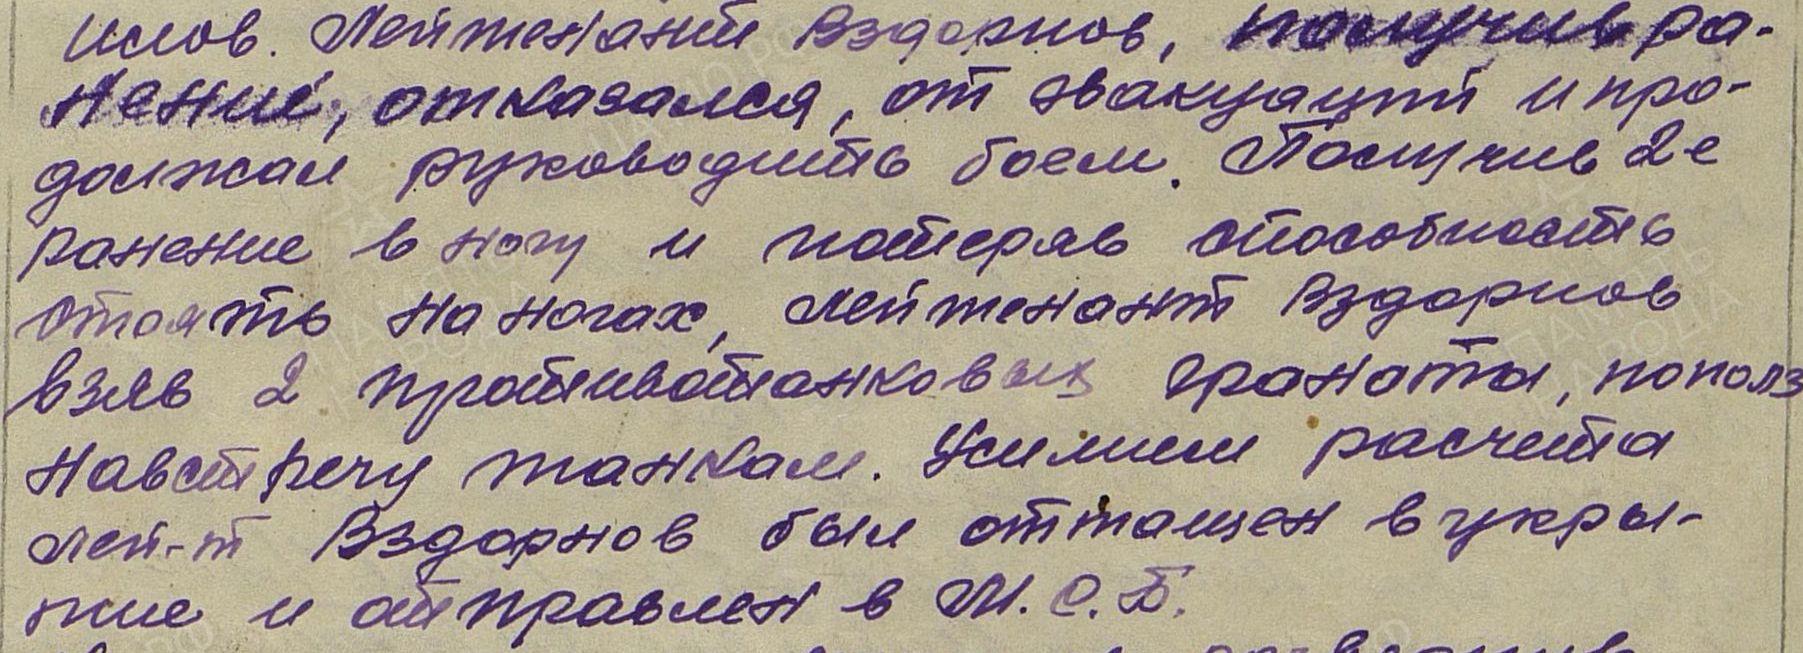 Лейтенант Вздорнов, получив ра-
нение, отказался, от эвакуации и про-
должал руководить боем. Получив 2-е
ранение в ногу и потеряв способность
стоять на ногах, лейтенант Вздорнов
взяв 2 противотанковых гранаты, пополз
навстречу танкам. Усилием расчета
лей-т Вздорнов был оттащен в укры-
тие и отправлен в М.С.Б.